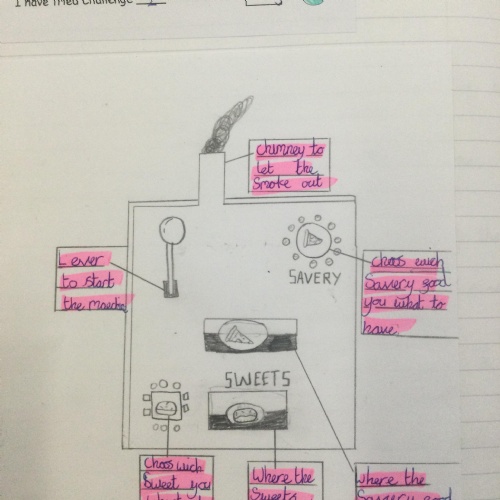 I have tried challenge
chimney to
let the
smoke out
Lever
to start
the
SAVERY
choos wich
Savery good
you what to
have.
SWEETS
choos wich
Sweet you
Where the
Sweets
where the
Savery good